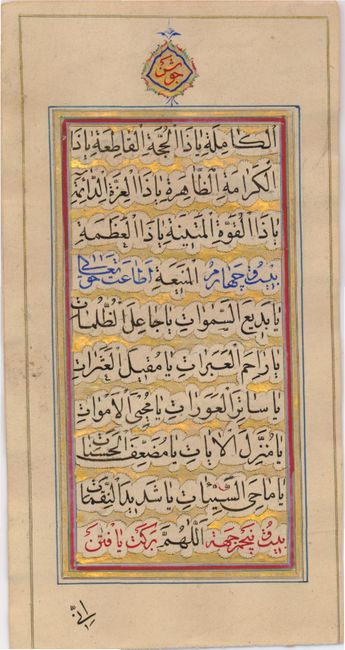 جوشن
الكاملة يا ذا الحجة القاطعة يا ذا
الكرامة الظاهرة يا ذا العزة الدائمة
يا ذا القوة المتينة يا ذا العظمة
بيست و چهارم المنيعة اطاعت
يا بديع السموات يا جاعل الظلمات
يا راحم العبرات يا مقيل العثرات
يا ساتر العورات يا محيي الاموات
يا منزل الايات يا مضعف الحسنات
يا ماحي السيئات يا شديد النقمات
بيست و پنجم جهة اللهم بركت يافتن